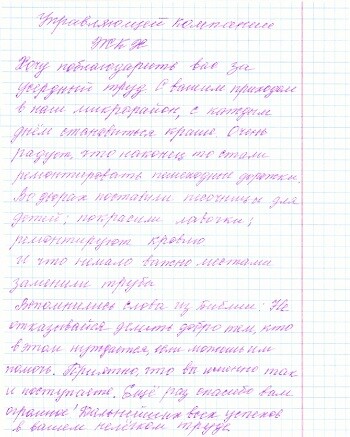 Управляющей компании
ЖКХ
Хочу поблагодарить вас за
усердный труд. С вашим приходом
в наш микрорайон, с каждым
днём становиться краше. Очень
радует, что наконец то стали
ремонтировать пешеходные дорожки.
Во дворах поставили песочницы для
детей; покрасили лавочки;
ремонтируют кровлю
И что немало важно местами
заменили трубы
Вспомнились слова из Библии: Не
отказывайся делать добро тем, кто
в этом нуждается, если можешь им
помочь. Приятно, что вы именно так
и поступаете. Ещё раз спасибо вам
огромное! Дальнейших всех успехов
в вашем нелёгком труде.